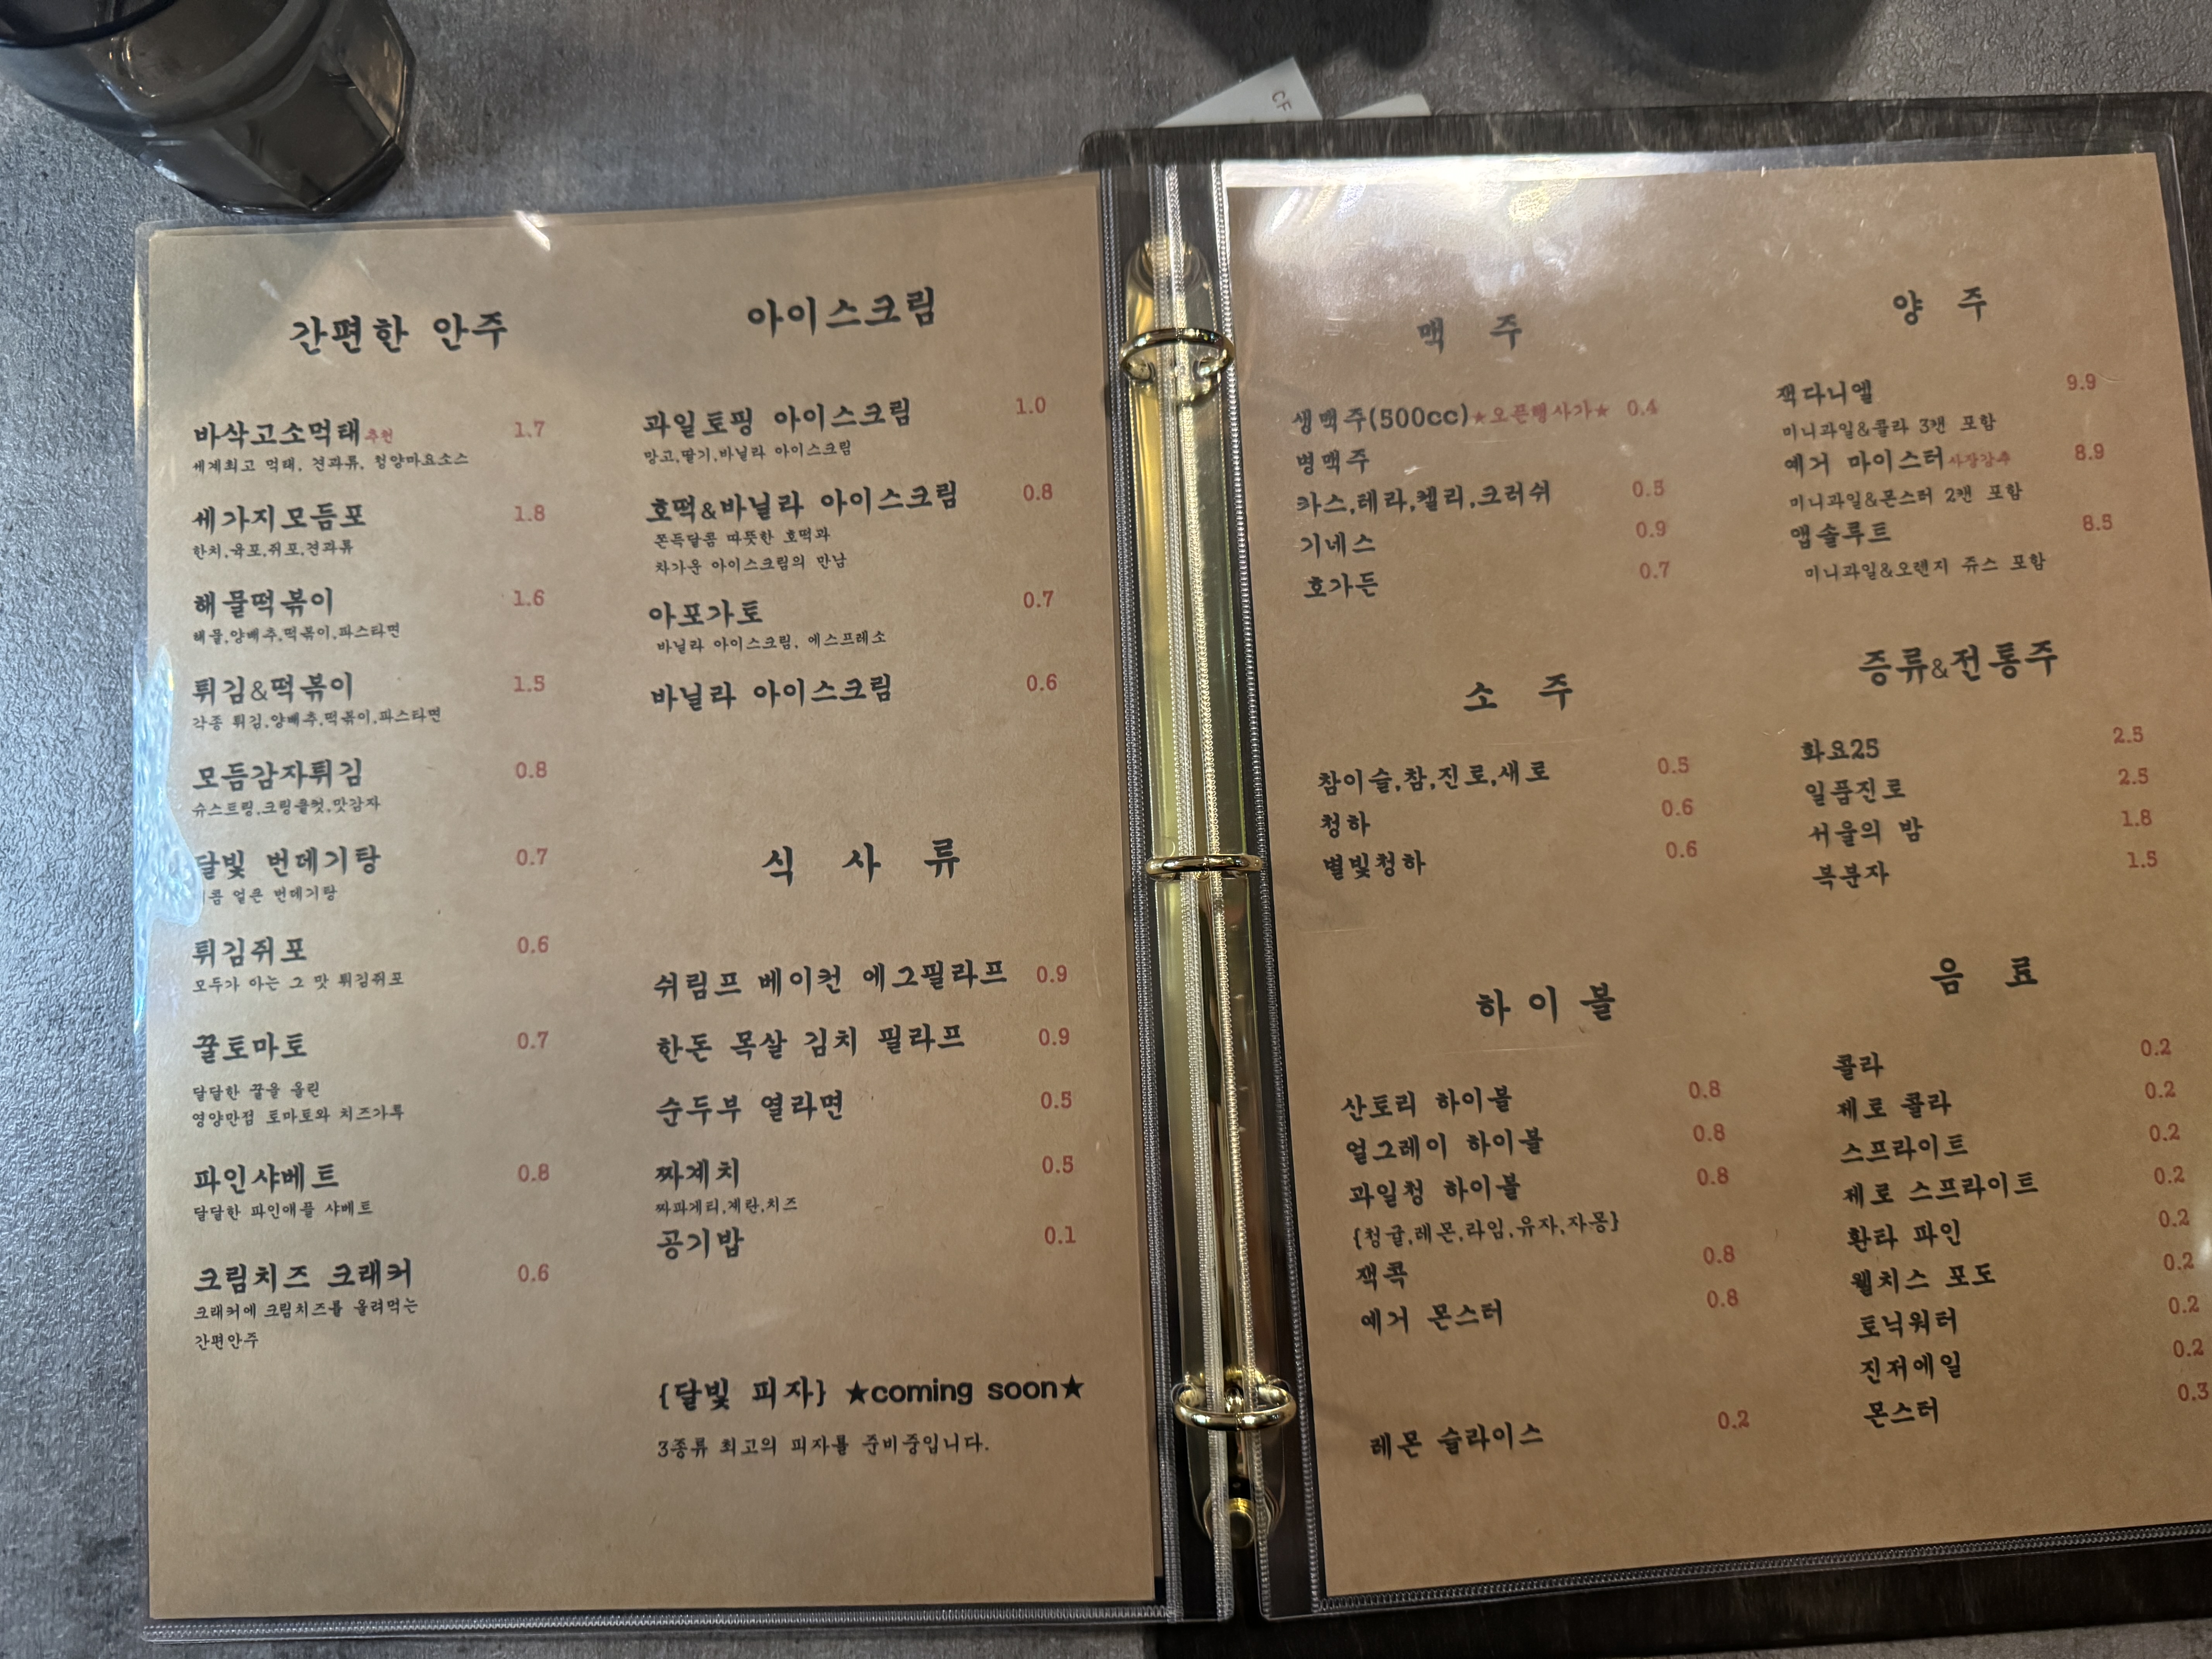 CF
간편한 안주
바삭고소먹태추천 1.7
세계최고 먹태, 견과류, 청양마요소스
세가지모듬포 1.8
한치,육포,쥐포,견과류
해물떡볶이 1.6
해물,양배추,떡볶이,파스타면
튀김&떡볶이 1.5
각종 튀김,양배추,떡볶이,파스타면
모듬감자튀김 0.8
슈스트링,크링클컷,맛감자
달빛 번데기탕 0.7
콤 얼큰 번데기탕
튀김쥐포 0.6
모두가 아는 그 맛 튀김쥐포
꿀토마토 0.7
달달한 꿀을 올린
영양만점 토마토와 치즈가루
파인샤베트 0.8
달달한 파인애플 샤베트
크림치즈 크래커 0.6
크래커에 크림치즈를 올려먹는
간편안주
아이스크림
과일토핑 아이스크림 1.0
망고,딸기,바닐라 아이스크림
호떡&바닐라 아이스크림 0.8
쫀득달콤 따뜻한 호떡과
차가운 아이스크림의 만남
아포가토 0.7
바닐라 아이스크림, 에스프레소
바닐라 아이스크림 0.6
식 사 류
쉬림프 베이컨 에그필라프 0.9
한돈 목살 김치 필라프 0.9
순두부 열라면 0.5
짜계치 0.5
짜파게티,계란,치즈
공기밥 0.1
{달빛 피자} ★coming soon★
3종류 최고의 피자를 준비중입니다.
맥 주
생맥주(500cc)★오픈행사가★ 0.4
병맥주
카스,테라,켈리,크러쉬 0.5
기네스 0.9
호가든 0.7
소 주
참이슬,참,진로,새로 0.5
청하 0.6
별빛청하 0.6
하이볼
산토리 하이볼 0.8
얼그레이 하이볼 0.8
과일청 하이볼 0.8
{청귤,레몬,라임,유자,자몽}
잭콕 0.8
예거 몬스터 0.8
레몬 슬라이스 0.2
양 주
잭다니엘 9.9
미니과일&콜라 3캔 포함
예거 마이스터사장강추 8.9
미니과일&몬스터 2캔 포함
앱솔루트 8.5
미니과일&오렌지 쥬스 포함
증류&전통주
화요25 2.5
일품진로 2.5
서울의 밤 1.8
복분자 1.5
음 료
콜라 0.2
제로 콜라 0.2
스프라이트 0.2
제로 스프라이트 0.2
환타 파인 0.2
웰치스 포도 0.2
토닉워터 0.2
진저에일 0.2
몬스터 0.3